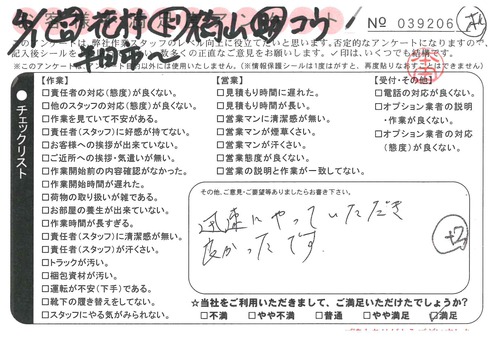 No 039206
のアンケートは、弊社作業スタッフのレベル向上に役立てたいと思います。否定的なアンケートになりますので、
記入後シールを
数多くのご意見をお聞かせ下さい。✓印は、いくつでも結構です。
※このアンケートは
目的以外には使用いたしません。(※情報保護シールは1度はがすと、再度貼りなおすことはできません)
チェックリスト
【作業】
□責任者の対応(態度)が良くない。
□他のスタッフの対応(態度)が良くない。
□作業を見ていて不安がある。
□責任者(スタッフ)に好感が持てない。
□お客様への挨拶が出来ていない。
□ご近所への挨拶・気遣いが無い。
□作業開始前の内容確認がなかった。
□作業開始時間が遅れた。
□荷物の取り扱いが雑である。
□お部屋の養生が出来ていない。
□作業時間が長すぎる。
□責任者(スタッフ)に清潔感が無い。
□責任者(スタッフ)が汗くさい。
□トラックが汚い。
□梱包資材が汚い。
□運転が不安(下手)である。
□靴下の履き替えをしてない。
□スタッフにやる気がみられない。
【営業】
□見積もり時間に遅れた。
□見積もり時間が長い。
□営業マンに清潔感が無い。
□営業マンが煙草くさい。
□営業マンが汗くさい。
□営業態度が良くない。
□営業の説明と作業が一致してない。
【受付・その他】
□電話の対応が良くない。
□オプション業者の説明
・作業が良くない。
□オプション業者の対応
(態度)が良くない。
その他、ご意見・ご要望等ありましたらお書き下さい。
迅速にやっていただき
良かったです。
☆当社をご利用いただきまして、ご満足いただけてでしょうか?
□不満 □やや不満 □普通 □やや満足 ☑満足